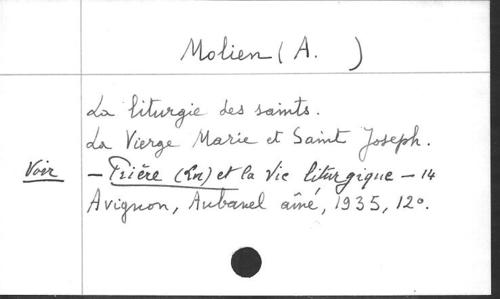 Molien (A. )
La liturgie des saints.
La Vierge Marie et Saint Joseph.
Voir — Prière (La) et la Vie liturgique — 14
Avignon, Aubanel aîné, 1935, 12°.